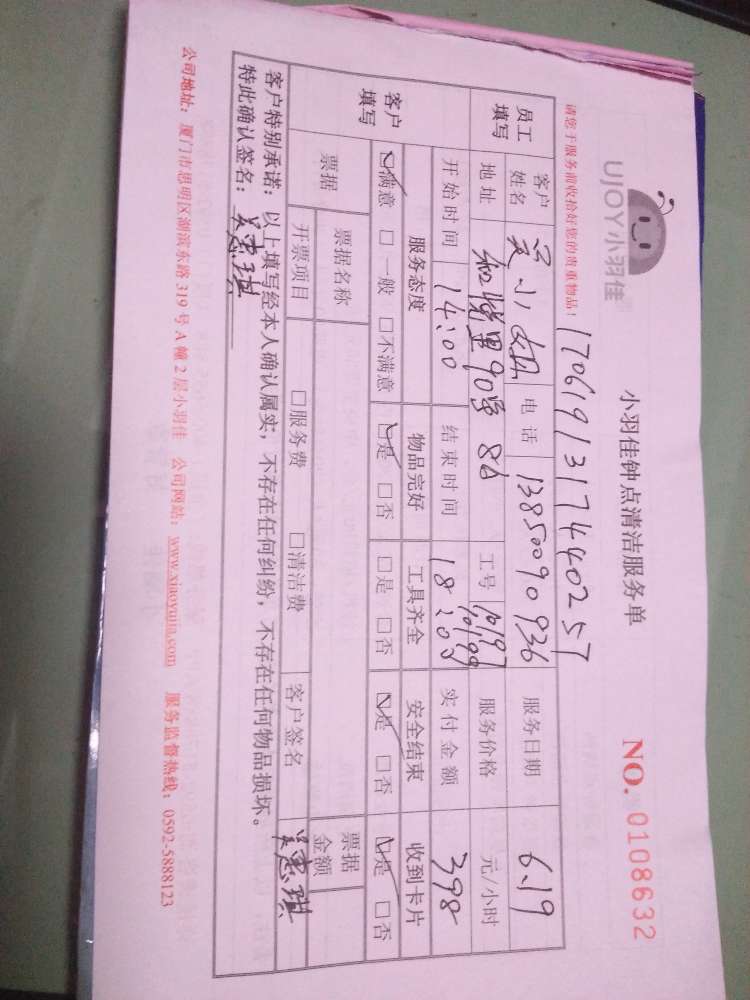 UJOY小羽佳
小羽佳钟点清洁服务单
NO. 0108632
请您于服务前收拾好您的贵重物品!
1706191317440257
员工填写 客户姓名 吴小姐 电话 13850090936 服务日期 6.19
地址 和悦里90号 8A 工号 服务价格 元/小时
开始时间 14:00 结束时间 18:00 实付金额 398
客户填写 服务态度 物品完好 工具齐全 安全结束 收到卡片
☑满意 □一般 □不满意 ☑是 □否 □是 □否 ☑是 □否 ☑是 □否
票据 票据名称 票据金额
开票项目 □服务费 □清洁费 客户签名 吴惠琪
客户特别承诺:以上填写经本人确认属实,不存在任何纠纷,不存在任何物品损坏。
特此确认签名:吴惠琪
公司地址:厦门市思明区湖滨东路319号A幢2层小羽佳 公司网站:www.xiaoyujia.com 服务监督热线:0592-5888123